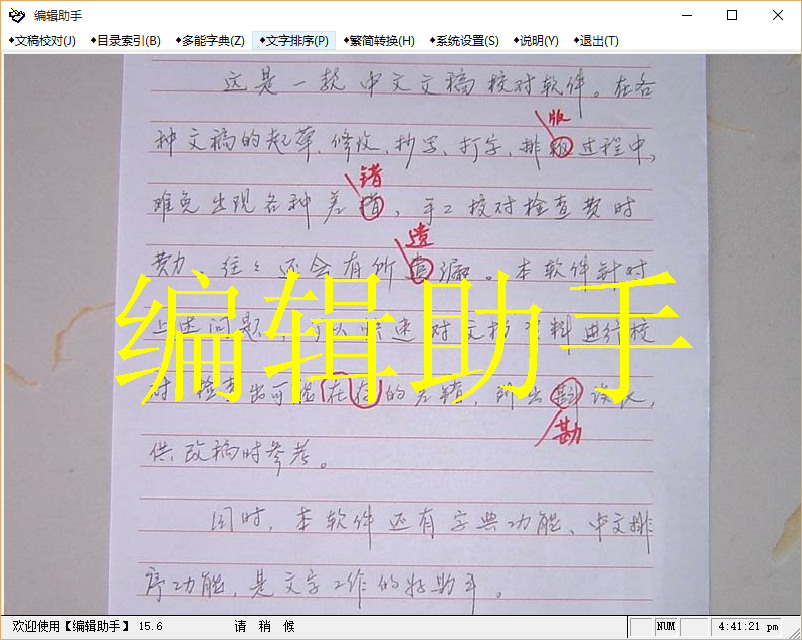 编辑助手
◆文稿校对(J) ◆目录索引(B) ◆多能字典(Z) ◆文字排序(P) ◆繁简转换(H) ◆系统设置(S) ◆说明(Y) ◆退出(T)
这是一款中文文稿校对软件。在各
版
种文稿的起草、修改、抄写、打字、排 过程中,
错
难免出现各种差 ,手工校对检查费时
遗
费力、往往还会有所 漏。本软件针对
编辑助手
上述问题,可以快速对文档资料进行校
对,检查出可能存在的差错,列出 误表,
勘
供改稿时参考。
同时,本软件还有字典功能、中文排
序功能,是文字工作的好助手。
欢迎使用【编辑助手】 15.6 请 稍 候 NUM 4:41:21 pm